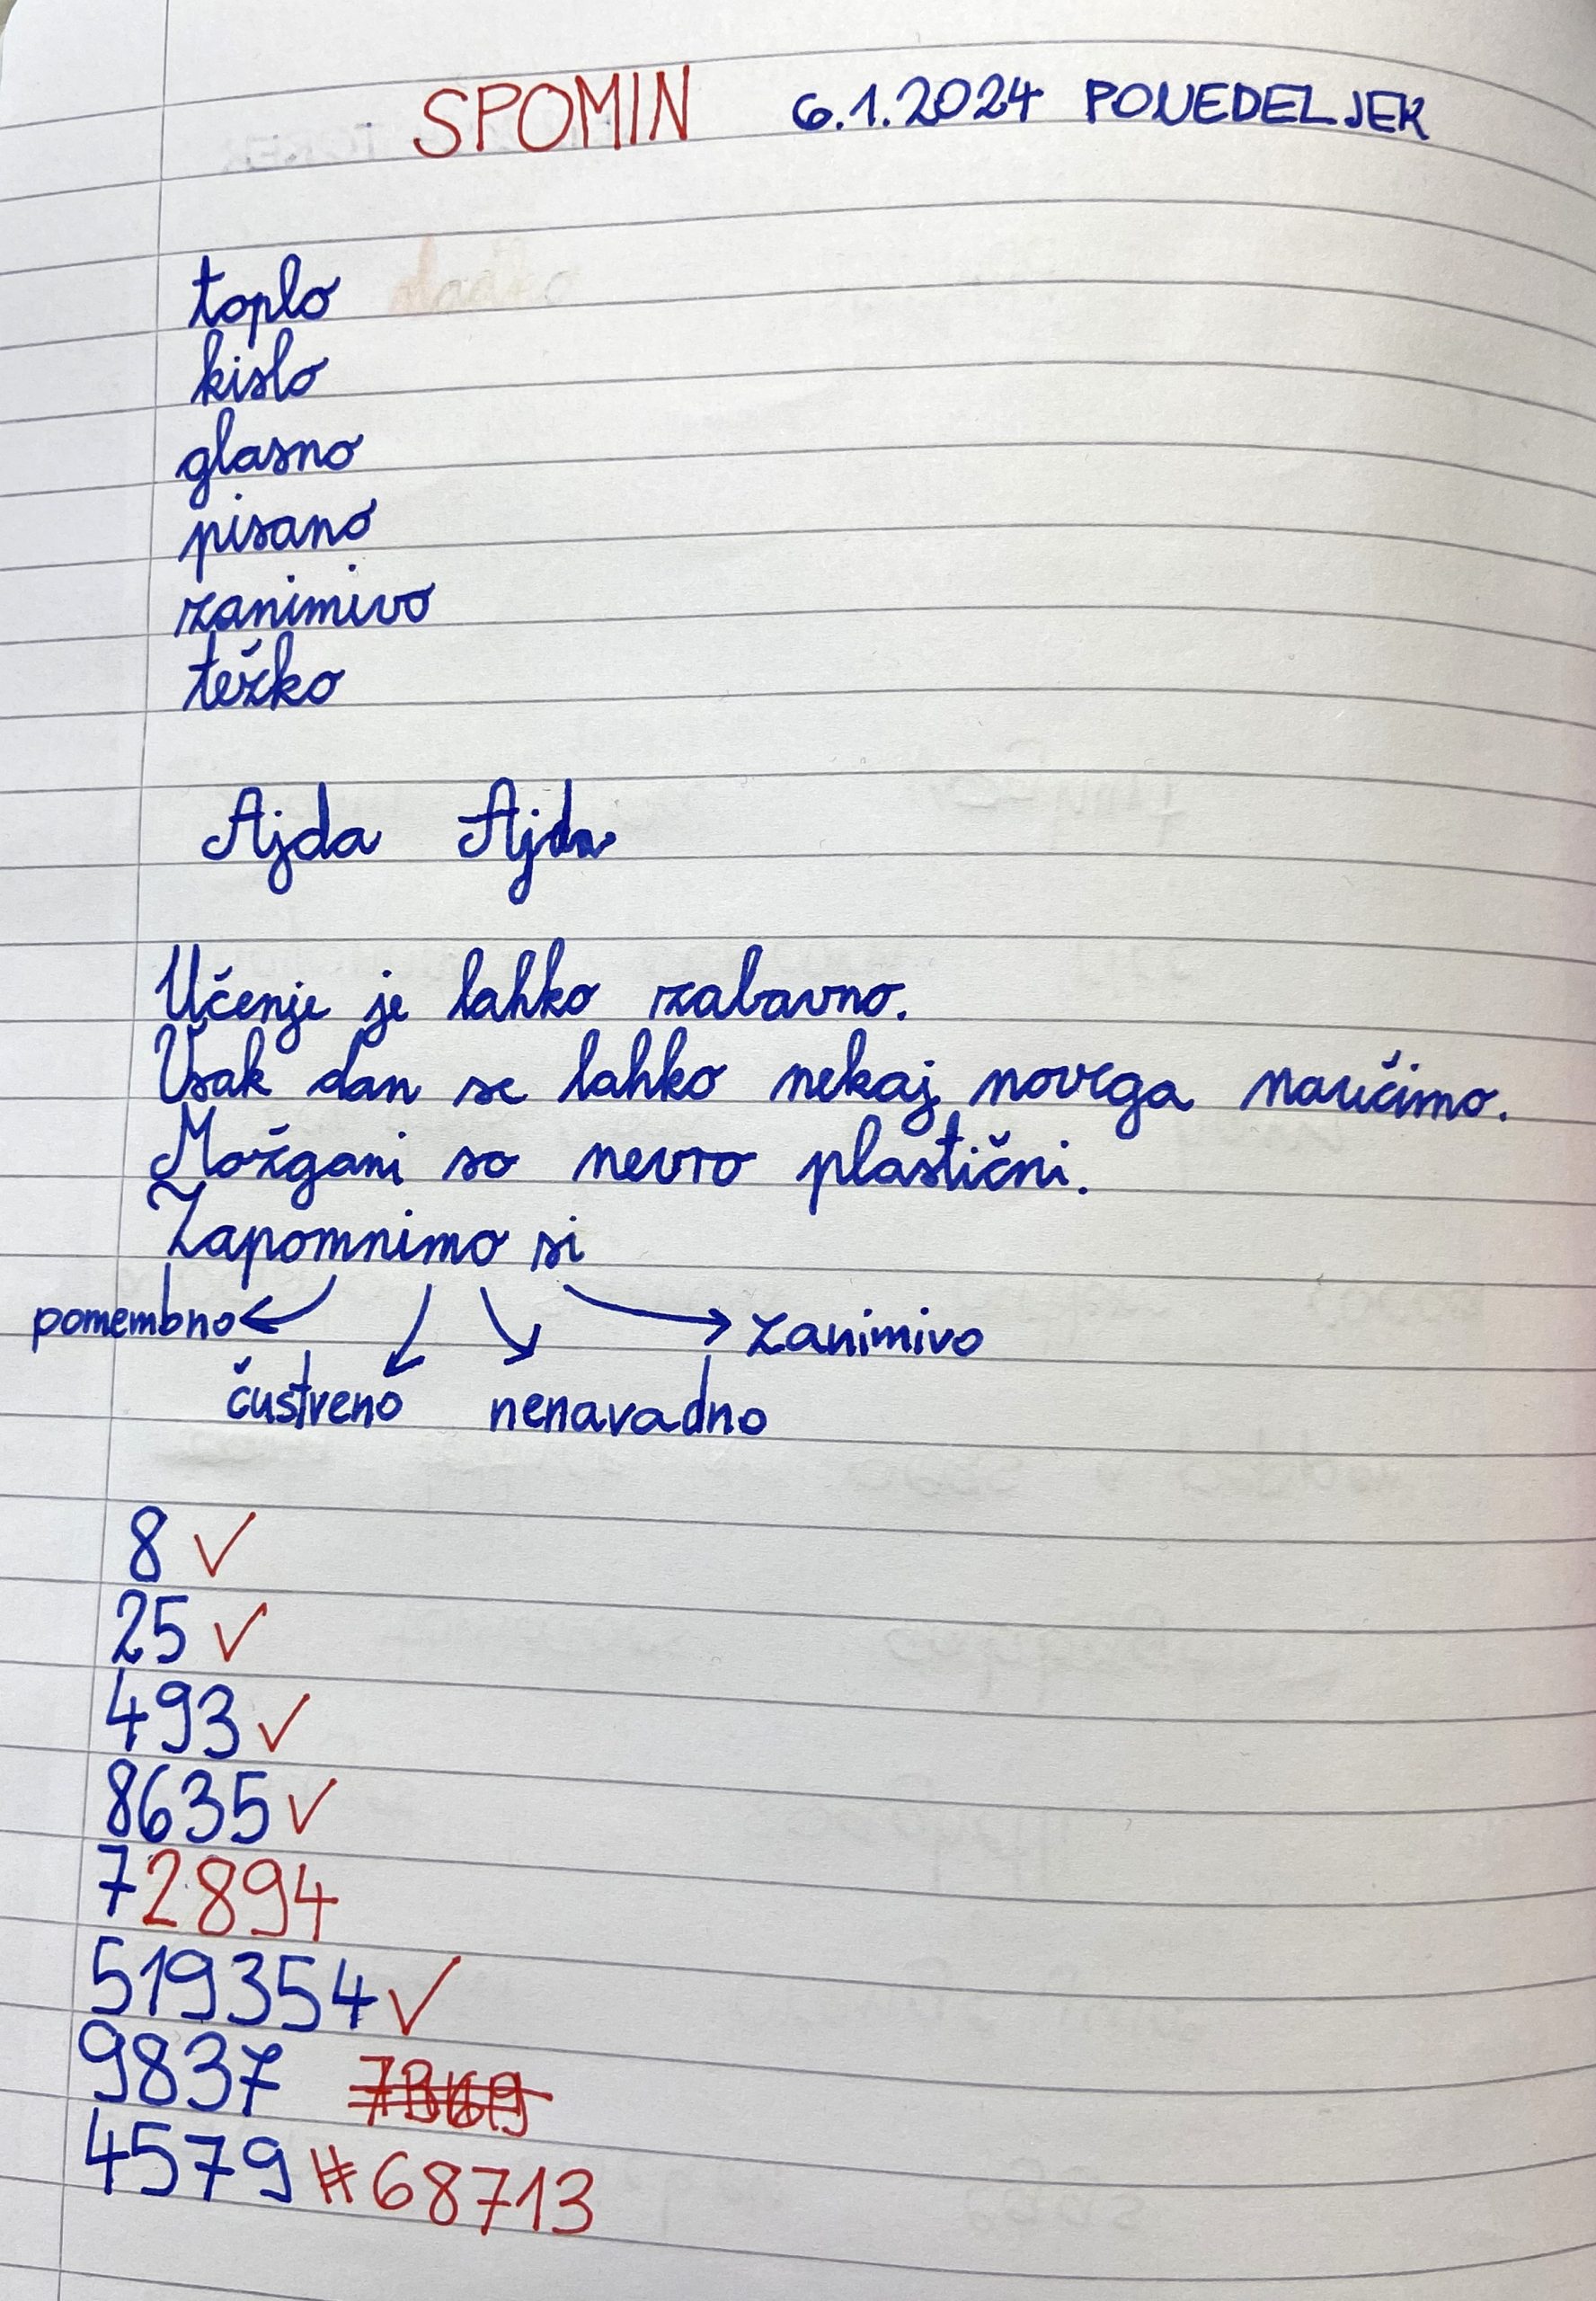 SPOMIN 6.1.2024 PONEDELJEK
toplo
kislo
glasno
pisano
zanimivo
težko
Ajda Ajda
Učenje je lahko zabavno.
Vsak dan se lahko nekaj novega naučimo.
Možgani so nevro plastični.
Zapomnimo si
pomembno
zanimivo
čustveno nenavadno
8 ✓
25 ✓
493 ✓
8635 ✓
72894
519354 ✓
9837
4579 68713